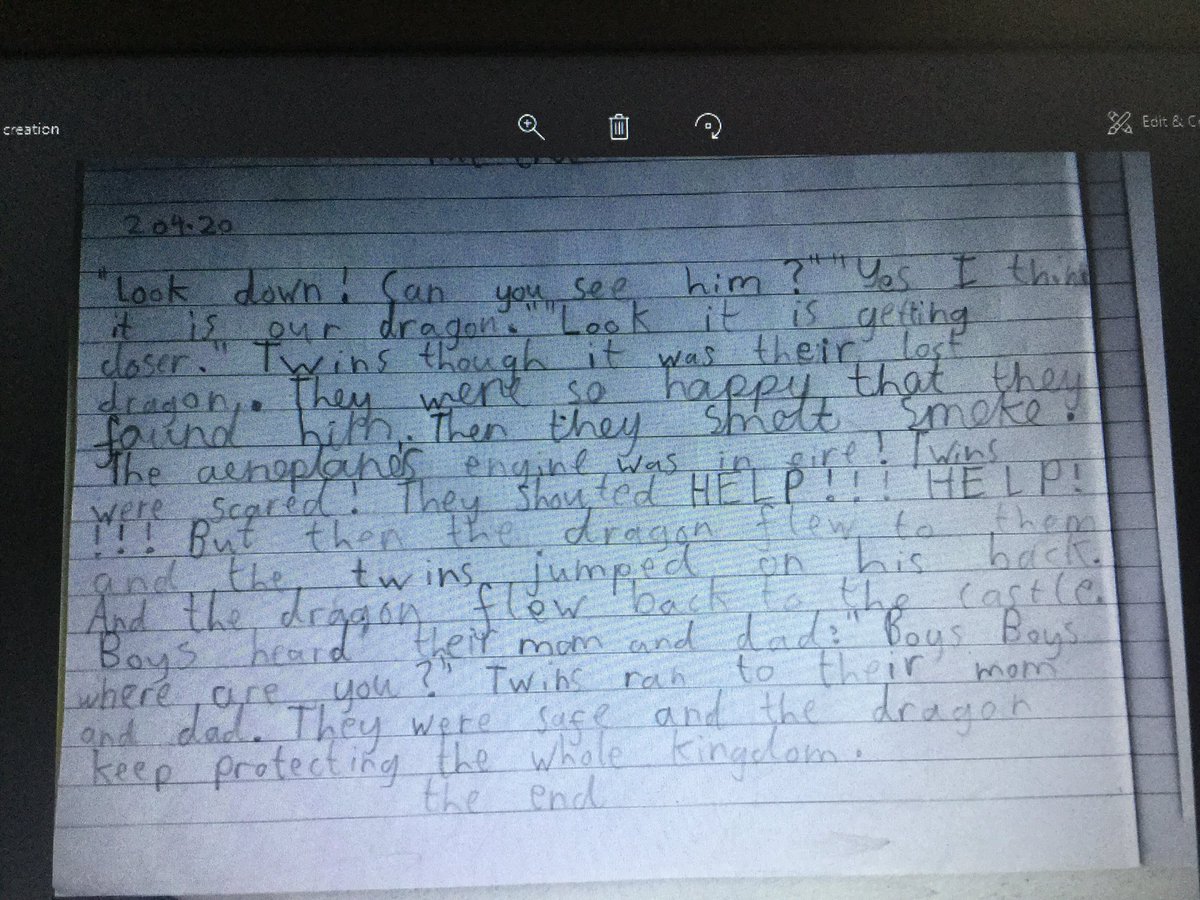 creation
Edit & C
2 04.20
"Look down! Can you see him?" "Yes I think
it is our dragon." "Look it is getting
closer." Twins though it was their lost
dragon. They were so happy that they
found him. Then they smelt smoke.
The aeroplane's engine was in fire! Twins
were scared! They shouted HELP!!! HELP!
!!! But then the dragon flew to them
and the twins jumped on his back.
And the dragon flew back to the castle.
Boys heard their mom and dad:" Boys Boys
where are you?" Twins ran to their mom
and dad. They were safe and the dragon
keep protecting the whole kingdom.
the end